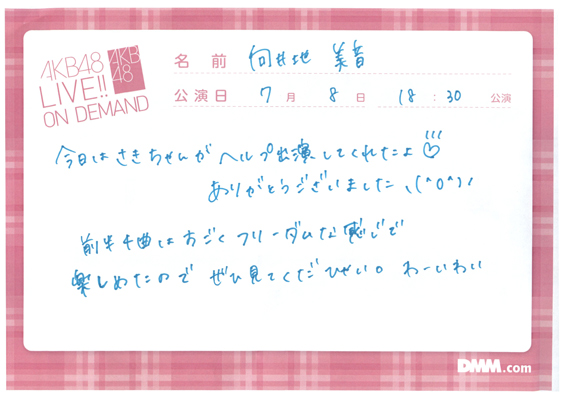 AKB48
LIVE!!
ON DEMAND
AKB
48
名前 向井地 美音
公演日 7月 8日 18:30 公演
今日はさきちゃんが ヘルプ出演してくれたよ♡
ありがとうございました、(^o^)丿
前半4曲はすごくフリーダムな感じで
楽しめたので ぜひ見てくだひゃい。わーいわい
DMM.com